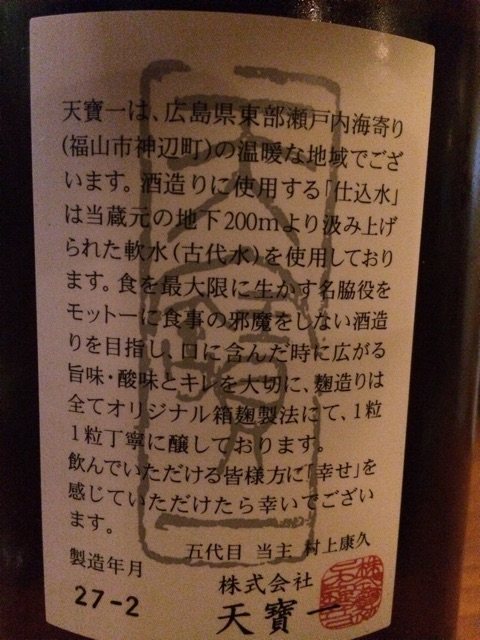 天寶一は、広島県東部瀬戸内海寄り
(福山市神辺町)の温暖な地域でござ
います。酒造りに使用する「仕込水」
は当蔵元の地下200mより汲み上げ
られた軟水(古代水)を使用しており
ます。食を最大限に生かす名脇役を
モットーに食事の邪魔をしない酒造
りを目指し、口に含んだ時に広がる
旨味・酸味とキレを大切に、麹造りは
全てオリジナル箱麹製法にて、1粒
1粒丁寧に醸しております。
飲んでいただける皆様方に「幸せ」を
感じていただけたら幸いでござい
ます。
五代目 当主 村上康久
製造年月
27-2
株式会社
天寶一